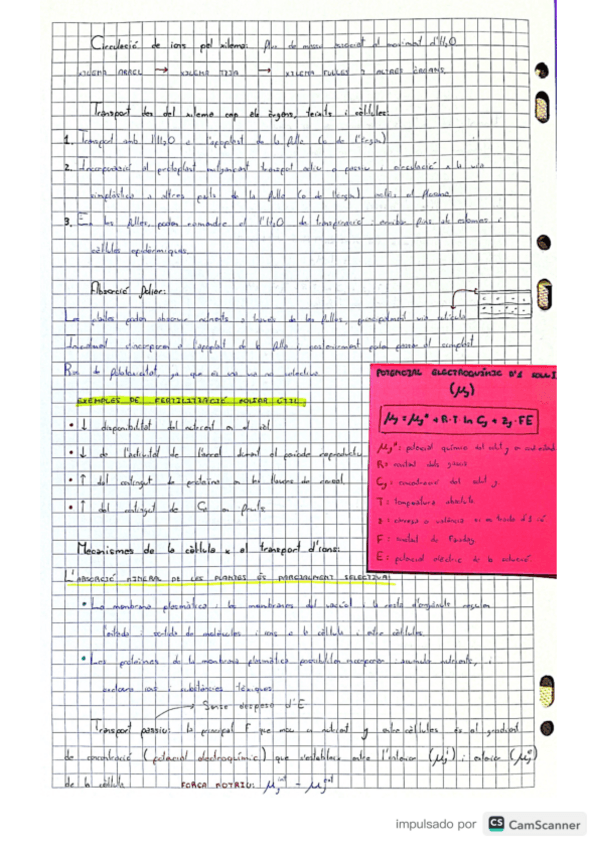 Circulació de ions pel xilema: flux de massa associat al moviment d'H2O
XILEMA ARREL → XILEMA TIJA → XILEMA FULLES I ALTRES ÒRGANS.
Transport des del xilema cap els òrgans, teixits i cèl·lules:
1. Transport amb l'H2O a l'apoplast de la fulla (o de l'òrgan)
2. Incorporació al protoplast mitjançant transport actiu o passiu i circulació a la via
simplàstica a altres parts de la fulla (o de l'òrgan) al floema
3. En les fulles, poden romandre el l'H2O de transpiració i arribar fins als estomes i
cèl·lules epidèrmiques.
Absorció foliar:
Les plantes poden absorvir nutrients a través de les fulles, principalment via cutícula
Inicialment s'incorporen a l'apoplast de la fulla i posteriorment poden passar al simplast
Risc de fitotoxicitat, ja que és una via no selectiva
EXEMPLES DE FERTILITZACIÓ FOLIAR ÚTIL:
• ↓ disponibilitat del nutrient en el sòl
• ↓ de l'activitat de l'arrel durant el període reproductiu
• ↑ del contingut de proteïna en les llavors de cereal
• ↑ del contingut de Ca en fruits
POTENCIAL ELECTROQUÍMIC D'1 SOLUT
(μj)
μj = μj* + R·T·ln Cj + Zj·FE
μj*: potencial químic del solut j en
R: constant dels gasos
Cj: concentració del solut j
T: temperatura absoluta
z: càrrega o valència
F: constant de Faraday
E: potencial elèctric de la solució
Mecanismes de la cèl·lula x al transport d'ions:
L'ABSORCIÓ MINERAL DE LES PLANTES ÉS PARCIALMENT SELECTIVA:
• La membrana plasmàtica i les membranes del vacúol i la resta d'orgànuls regulen
l'entrada i sortida de molècules i ions a la cèl·lula i entre cèl·lules
• Les proteïnes de la membrana plasmàtica possibiliten incorporar i acumular nutrients, i
excloure ions i substàncies tòxiques
Sense despesa d'E
Transport passiu: la principal F que mou un nutrient j entre cèl·lules és el gradient
de concentració (potencial electroquímic) que s'estableix entre l'interior (μj) i exterior (μj)
de la cèl·lula FORÇA MOTRIU: μj int - μj ext
impulsado por CS CamScanner